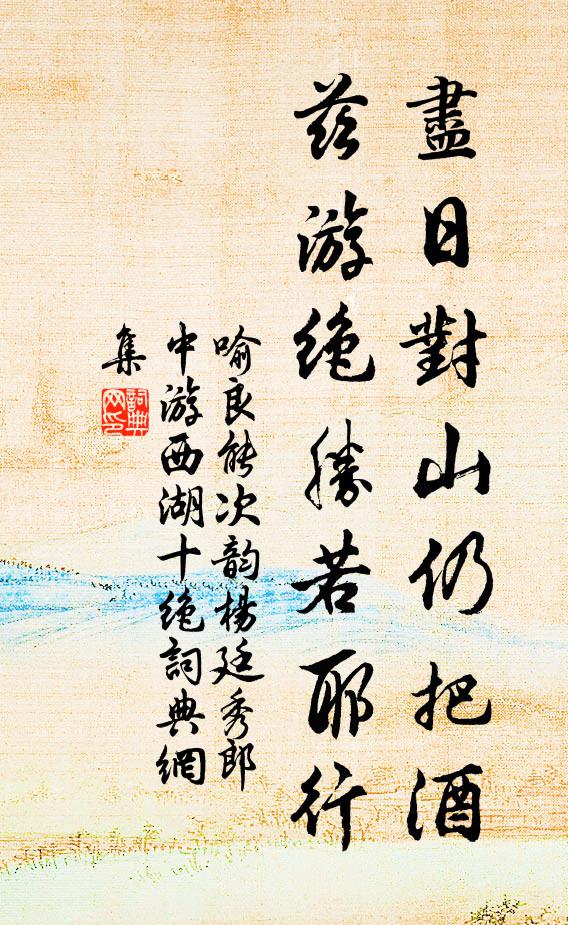 盡日對山仍把酒
茲游絶勝若耶行
喻良能次韵楊廷秀郎
中游西湖十絶詞典網
集
詞典
网印